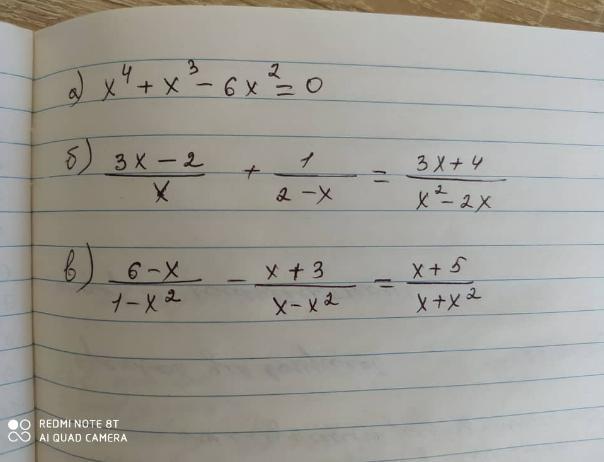 а) x⁴ + x³ − 6x² = 0
б) (3x − 2)/x + 1/(2 − x) = (3x + 4)/(x² − 2x)
в) (6 − x)/(1 − x²) − (x + 3)/(x − x²) = (x + 5)/(x + x²)
REDMI NOTE 8T
AI QUAD CAMERA